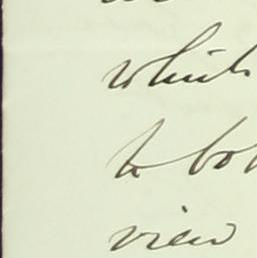 which
to bo
view